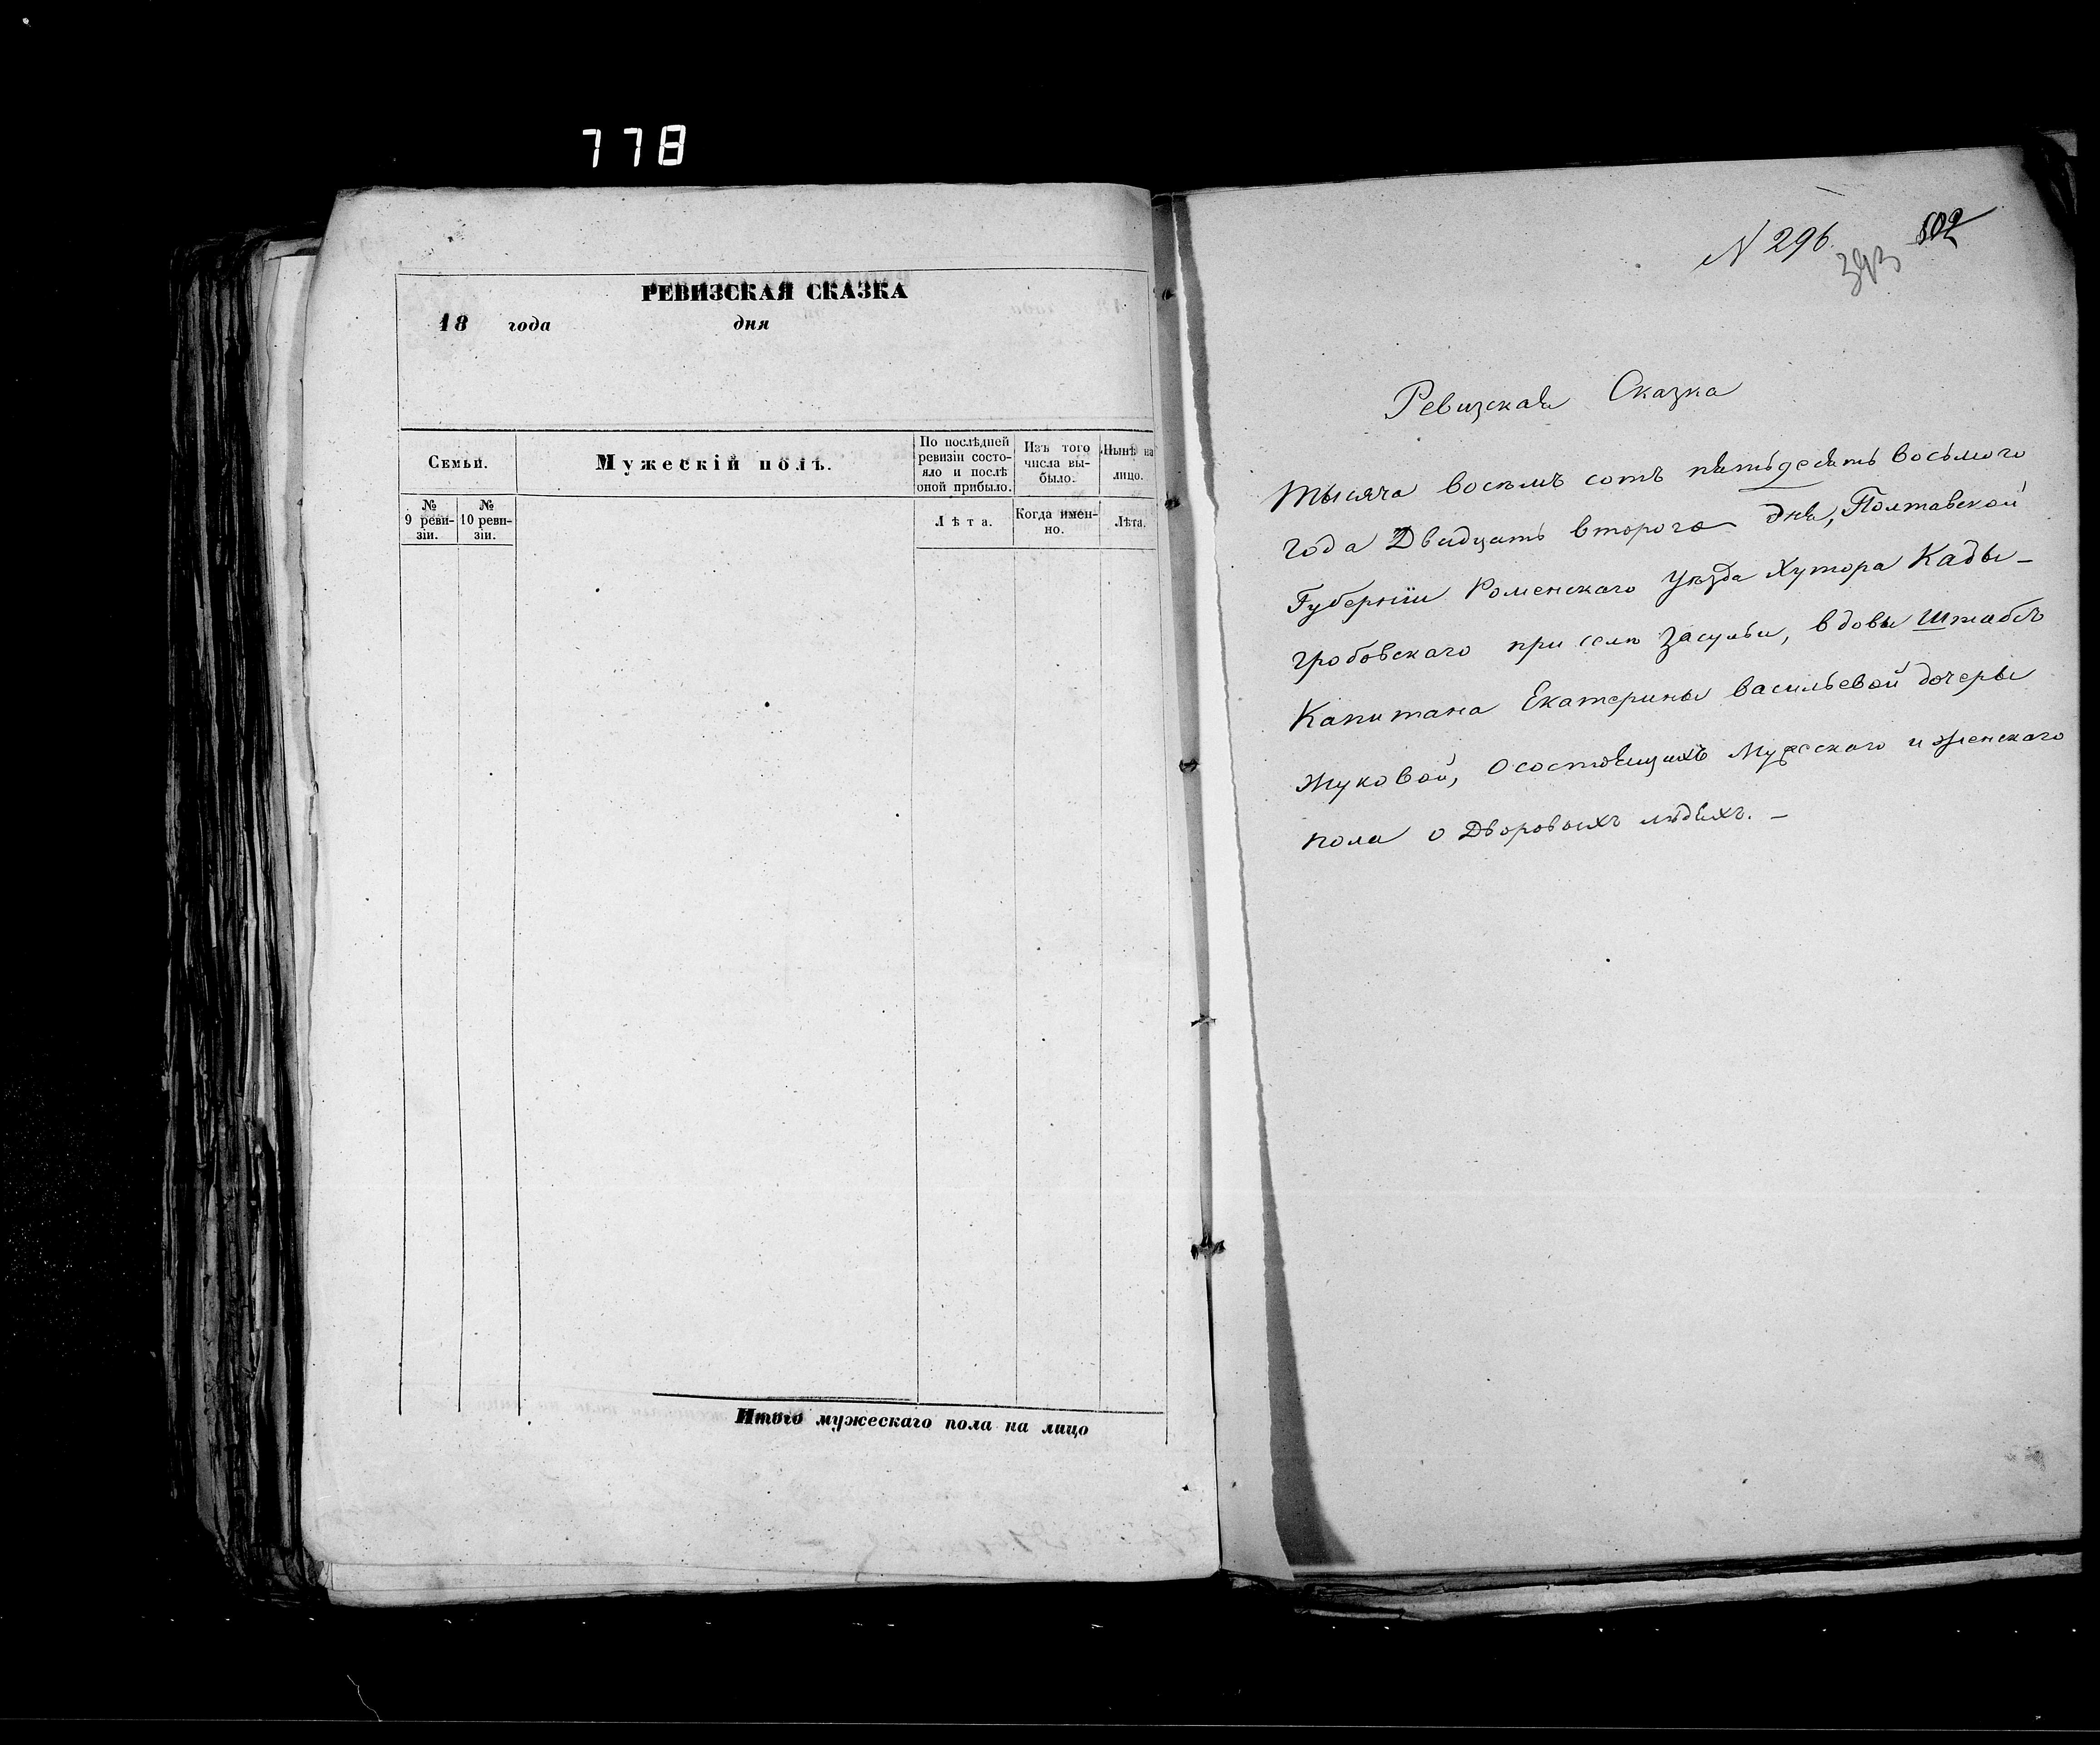 778
РЕВИЗСКАЯ СКАЗКА
18 года дня
Семьи.
Мужескій полъ.
По послѣдней
ревизіи состо-
яло и послѣ
оной прибыло.
Изъ того
числа вы-
было.
Нынѣ на
лицо.
№
9 реви-
зіи.
№
10 реви-
зіи.
Лѣта.
Когда имен-
но.
Лѣта.
Итого мужескаго пола на лицо
N 296.
502
393
Ревизская Сказка
Тысяча восемъ сотъ пятьдесятъ восьмого
года Двадцать второго дня, Полтавской
Губерніи Роменскаго Уезда Хутора Кады-
гробовскаго при селе Засульи, вдовы Штабсъ
Капитана Екатерины васильевой дочеры
Жуковой, О состоящихъ Мужескаго и женскаго
пола о Дворовыхъ людяхъ. -